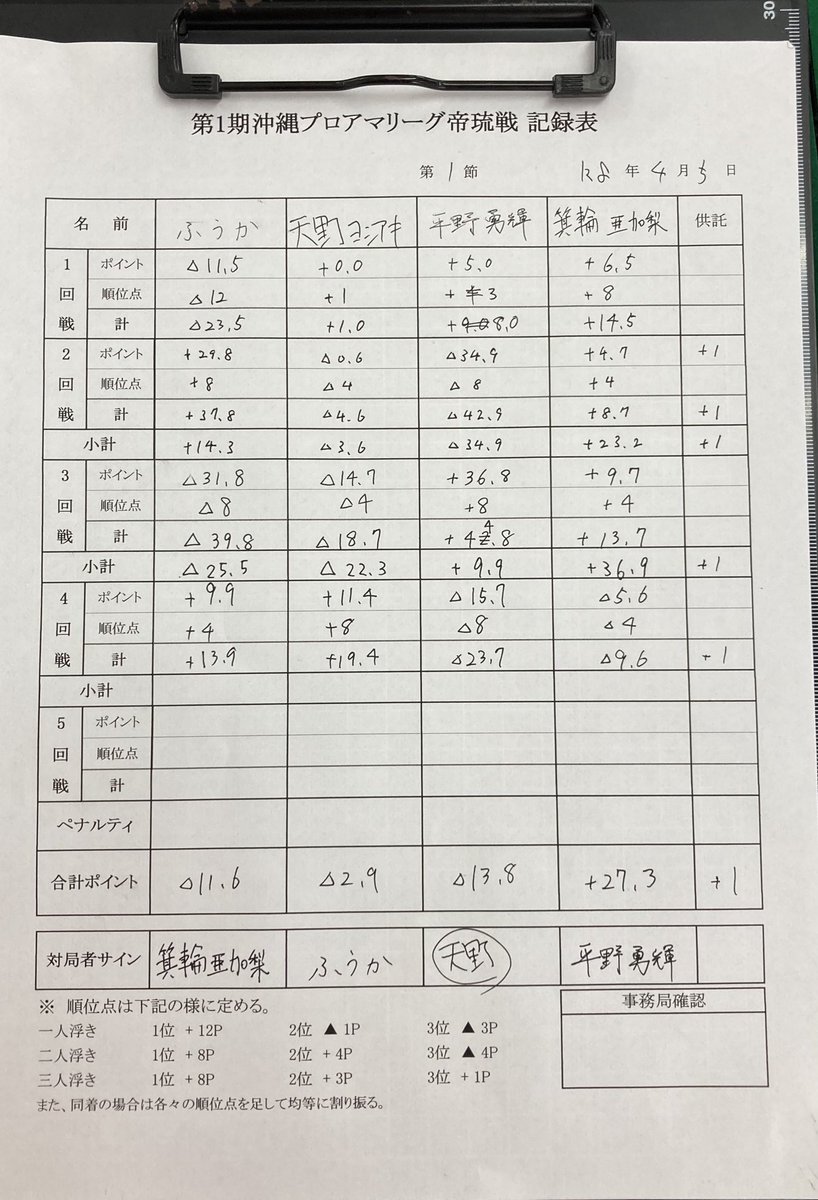 30
第1期沖縄プロアマリーグ帝琉戦 記録表
第 1 節 年 4 月 5 日
名 前 ふうか 天野ヨシアキ 平野勇輝 箕輪亜加梨 供託
1 ポイント △11.5 +0.0 +5.0 +6.5
回 順位点 △12 +1 +3 +8
戦 計 △23.5 +1.0 +8.0 +14.5
2 ポイント +29.8 △0.6 △34.9 +4.7 +1
回 順位点 +8 △4 △8 +4
戦 計 +37.8 △4.6 △42.9 +8.7 +1
小計 +14.3 △3.6 △34.9 +23.2 +1
3 ポイント △31.8 △14.7 +36.8 +9.7
回 順位点 △8 △4 +8 +4
戦 計 △39.8 △18.7 +44.8 +13.7
小計 △25.5 △22.3 +9.9 +36.9 +1
4 ポイント +9.9 +11.4 △15.7 △5.6
回 順位点 +4 +8 △8 △4
戦 計 +13.9 +19.4 △23.7 △9.6 +1
小計
5 ポイント
回 順位点
戦 計
ペナルティ
合計ポイント △11.6 △2.9 △13.8 +27.3 +1
対局者サイン 箕輪亜加梨 ふうか 天野 平野勇輝
※ 順位点は下記の様に定める。 事務局確認
一人浮き 1位 + 12P 2位 ▲ 1P 3位 ▲ 3P
二人浮き 1位 + 8P 2位 + 4P 3位 ▲ 4P
三人浮き 1位 + 8P 2位 + 3P 3位 + 1P
また、同着の場合は各々の順位点を足して均等に割り振る。